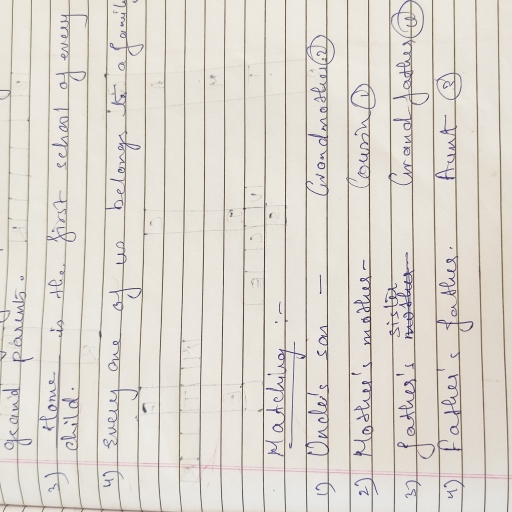 grand parent.
3) Home is the first school of every
child.
4) Every one of us belongs to a family
Matching :-
1) Uncle's son - Grandmother (2)
2) Mother's mother - Cousin (1)
3) father's sister Grand father (4)
4) Father's father. Aunt (3)